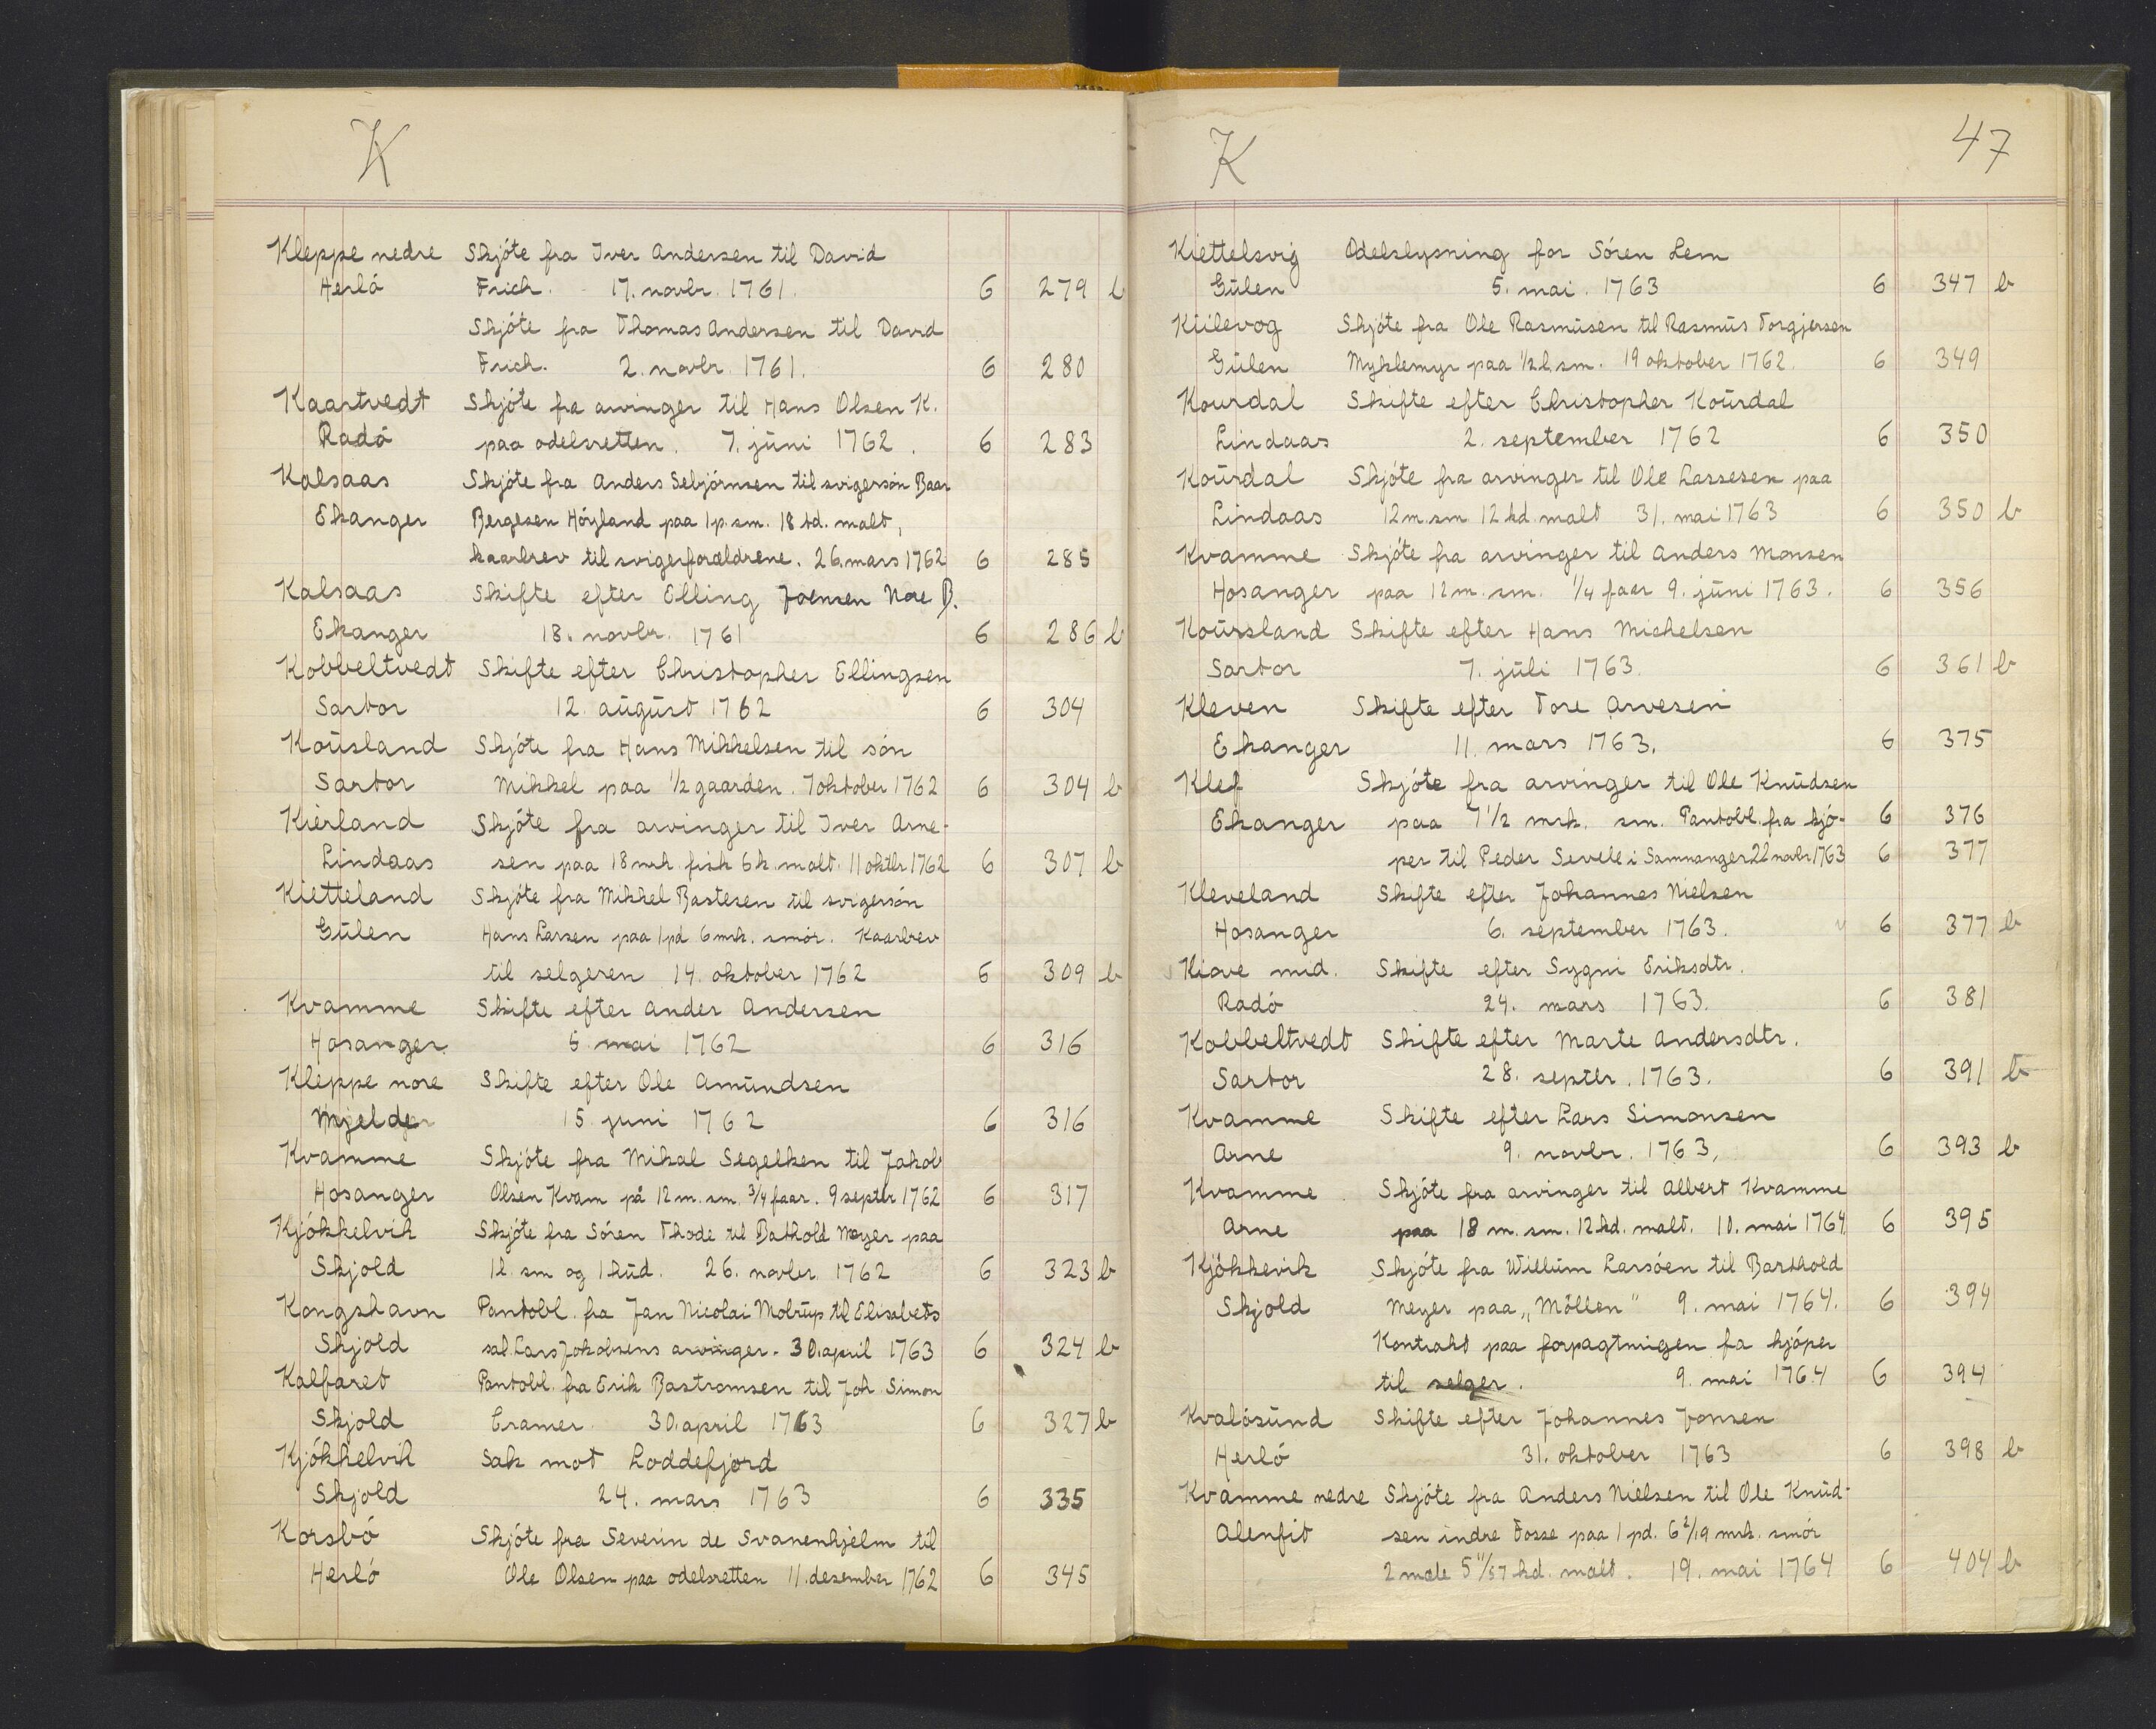 K
Kleppe nedre Skjóte fra Iver Andersen til David
Herló Frich. 17. novbr. 1761. 6 279 b
Skjóte fra Thomas Andersen til David
Frich. 2. novbr. 1761. 6 280
Kaartvedt Skjóte fra arvinger til Hans Olsen K.
Radó paa odelsretten. 7. jŭni 1762. 6 283
Kalsaas Skjóte fra Anders Sebjórnsen til svigersón Baar
Ekanger Bergesen Hóyland paa 1 p. sm. 18 td. malt,
kaarbrev til svigerforældrene. 26. mars 1762 6 285
Kalsaas Skifte efter Elling Joensen Nore B.
Ekanger 18. novbr. 1761 6 286 b
Kobbeltvedt Skifte efter Christopher Ellingsen
Sartor 12. aŭgŭst 1762 6 304
Koŭsland Skjóte fra Hans Mikkelsen til són
Sartor Mikkel paa 1/2 gaarden. 7 oktober 1762 6 304 b
Kierland Skjóte fra arvinger til Iver Arne-
Lindaas sen paa 18 mrk. fisk 6 k. malt. 11 oktbr 1762 6 307 b
Kietteland Skjóte fra Mikkel Bastesen til svigersón
Gŭlen Hans Larsen paa 1 pd 6 mrk. smór. Kaarbrev
til selgeren 14. oktober 1762 6 309 b
Kvamme Skifte efter Ander Andersen
Hosanger 5. mai 1762 6 316
Kleppe nore Skifte efter Ole Amŭndsen
Mjelde 15. juni 1762 6 316
Kvamme Skjóte fra Mikal Segelken til Jakob
Hosanger Olsen Kvam på 12 m. sm. 3/4 faar. 9 septbr 1762 6 317
Kjókkelvik Skjóte fra Sóren Thode til Bathold Meyer paa
Skjold 1 l. sm og 1 hŭd. 26. novbr. 1762 6 323 b
Kongshavn Pantobl. fra Jan Nicolai Molrŭp til Elisabets
Skjold sal. Lars Jakobsens arvinger. 30. april 1763 6 324 b
Kalfaret Pantobl. fra Erik Bastromsen til Joh. Simon
Skjold Cramer. 30. april 1763 6 327 b
Kjókkelvik Sak mot Loddefjord
Skjold 24. mars 1763 6 335
Korsbó Skjóte fra Severin de Svanenhjelm til
Herló Ole Olsen paa odelsretten 11. desember 1762 6 345
K 47
Kiettelsvig Odelslysning for Sóren Lem
Gŭlen 5. mai. 1763 6 347 b
Kiilevog Skjóte fra Ole Rasmŭsen til Rasmŭs Torgjersen
Gŭlen Myklemyr paa 1/2 l. sm. 19 oktober 1762. 6 349
Kourdal Skifte efter Christopher Koŭrdal
Lindaas 2. september 1762 6 350
Koŭrdal Skjóte fra arvinger til Ole Lassesen paa
Lindaas 12 m. sm 12 kd. malt 31. mai 1763 6 350 b
Kvamme Skjóte fra arvinger til Anders Monsen
Hosanger paa 12 m. sm. 1/4 faar 9. jŭni 1763. 6 356
Koŭrsland Skifte efter Hans Michelsen
Sartor 7. jŭli 1763. 6 361 b
Kleven Skifte efter Tore Arvesen
Ekanger 11. mars 1763. 6 375
Klef Skjóte fra arvinger til Ole Knŭdsen
Ekanger paa 7 1/2 mrk. sm. Pantobl. fra kjó- 6 376
per til Peder Sevele i Samnanger 22 novbr 1763 6 377
Kleveland Skifte efter Johannes Nielsen
Hosanger 6. september 1763. 6 377 b
Kiove md. Skifte efter Sygni Eriksdtr.
Radó 24. mars 1763. 6 381
Kobbeltvedt Skifte efter Marte Andersdtr.
Sartor 28. septbr. 1763. 6 391 b
Kvamme Skifte efter Lars Simonsen
Arne 9. novbr. 1763, 6 393 b
Kvamme Skjóte fra arvinger til Albert Kvamme
Arne paa 18 m. sm. 12 kd. malt. 10. mai 1764 6 395
Kjókkevik Skjóte fra Willŭm Larsóen til Barthold
Skjold Meyer paa „Móllen" 9. mai 1764. 6 394
Kontrakt paa forpagtnigen fa kjóper
til selger. 9. mai 1764 6 394
Kvalósŭnd Skifte efter Johannes Jonsen
Herló 31. oktober 1763 6 398 b
Kvamme nedre Skjóte fra Anders Nielsen til Ole Knŭd-
Alenfit sen indre Fosse paa 1 pd. 6 2/19 mrk. smór
2 mele 5 11/57 kd. malt. 19. mai 1764 6 404 b